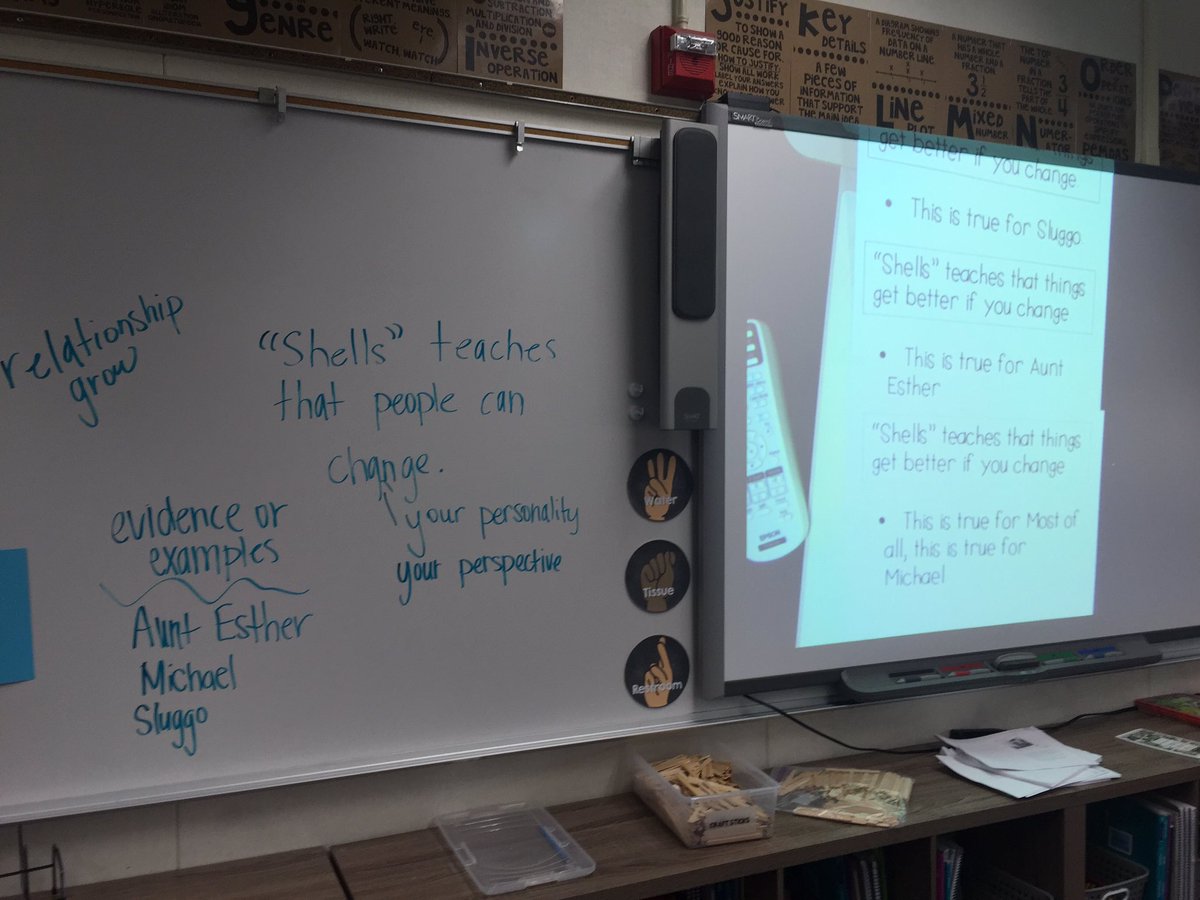 GENRE
(RIGHT,
WRITE
WATCH, WATCH)
SUBTRACTION
MULTIPLICATION
AND DIVISION
INVERSE
OPERATION
JUSTIFY
TO SHOW A
GOOD REASON
OR CAUSE FOR
KEY
DETAILS
A FEW
PIECES OF
INFORMATION
THAT SUPPORT
THE MAIN IDEA
A DIAGRAM SHOWING
FREQUENCY OF
DATA ON A
NUMBER LINE
LINE
PLOT
A NUMBER THAT
HAS A WHOLE
NUMBER AND A
FRACTION
MIXED
NUMBER
THE TOP
NUMBER
IN A
FRACTION
TELLS THE
PART OF THE
WHOLE
3
4
NUMER-
ATOR
ORDER
OPERAT-
IONS
PEMDAS
SMART Board
relationship
grow
"Shells" teaches
that people can
change.
your personality
your perspective
evidence or
examples
Aunt Esther
Michael
Sluggo
Water
Tissue
Restroom
SMART
get better if you change
• This is true for Sluggo
"Shells" teaches that things
get better if you change
• This is true for Aunt
Esther
"Shells" teaches that things
get better if you change
• This is true for Most of
all, this is true for
Michael
EPSON
CRAFT STICKS